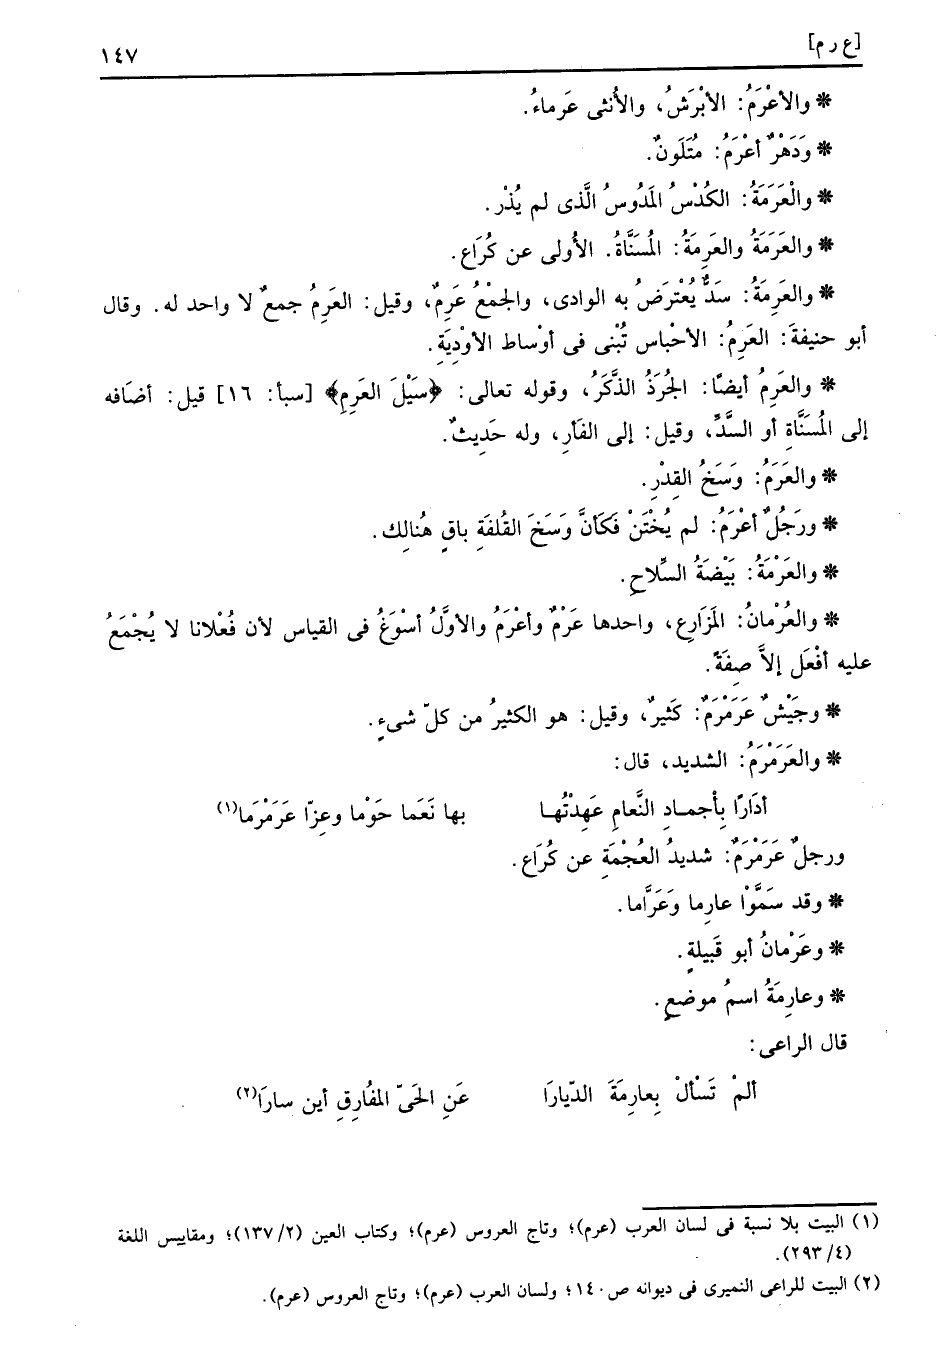 [ع ر م]
١٤٧
* والأعْرَمُ: الأبْرَشُ، والأُنثى عَرماءُ.
* وَدَهْرٌ أعْرَمُ: مُتَلَونٌ.
* والْعَرَمَةُ: الكُدْسُ المَدُوسُ الَّذى لم يُذْر.
* والعَرَمَةُ والعَرِمَةُ: المُسَنَّاةُ. الأُولى عن كُرَاع.
* والعَرِمَةُ: سَدٌّ يُعْتَرَضُ به الوادى، والجمْعُ عَرِمٌ، وقيل: العَرِمُ جمعٌ لا واحد له. وقال
أبو حنيفةَ: العَرِمُ: الأحْباس تُبْنى فى أوْساط الأوْدِيَةِ.
* والعَرِمُ أيضًا: الجُرَذُ الذَّكَرُ، وقوله تعالى: ﴿سَيْلَ العَرِمِ﴾ [سبأ: ١٦] قيل: أضَافه
إلى المُسَنَّاةِ أو السَّدِّ، وقيل: إلى الفَأرِ، وله حَدِيثٌ.
* والعَرَمُ: وَسَخُ القِدْرِ.
* ورَجُلٌ أعْرَمُ: لم يُخْتَنْ فَكَأنَّ وَسَخَ القُلفَةِ باقٍ هُنالِك.
* والعَرْمَةُ: بَيْضَةُ السِّلاحِ.
* والعُرْمانُ: المَزَارِع، واحدها عَرْمٌ وأعْرَمُ والأوَّلُ أسْوَغُ فى القياس لأن فُعْلانا لا يُجْمَعُ
عليه أفْعَل إلاَّ صِفَةً.
* وجَيْشٌ عَرَمْرَمٌ: كَثيرٌ، وقيل: هو الكثيرُ من كلّ شىءٍ.
* والعَرَمْرَمُ: الشديد، قال:
أدَارًا بِأجمـادِ النَّعامِ عَهِدْتُهـا بها نَعَما حَوْما وعِزّا عَرَمْرَما(١)
ورجلٌ عَرَمْرَمٌ: شديدُ العُجْمَةِ عن كُرَاع.
* وقد سَمَّوْا عارِما وَعَرَّاما.
* وعَرْمانُ أبو قَبيلةٍ.
* وعارِمَةُ اسمُ موضعٍ.
قال الراعى:
ألمْ تَسْألْ بِعارِمَةَ الدّيارَا عَنِ الحَىّ المفُارِقِ أين سارَا(٢)
(١) البيت بلا نسبة فى لسان العرب (عرم)؛ وتاج العروس (عرم)؛ وكتاب العين (١٣٧/٢)؛ ومقاييس اللغة
(٢٩٣/٤).
(٢) البيت للراعى النميرى فى ديوانه ص١٤٠؛ ولسان العرب (عرم)؛ وتاج العروس (عرم).